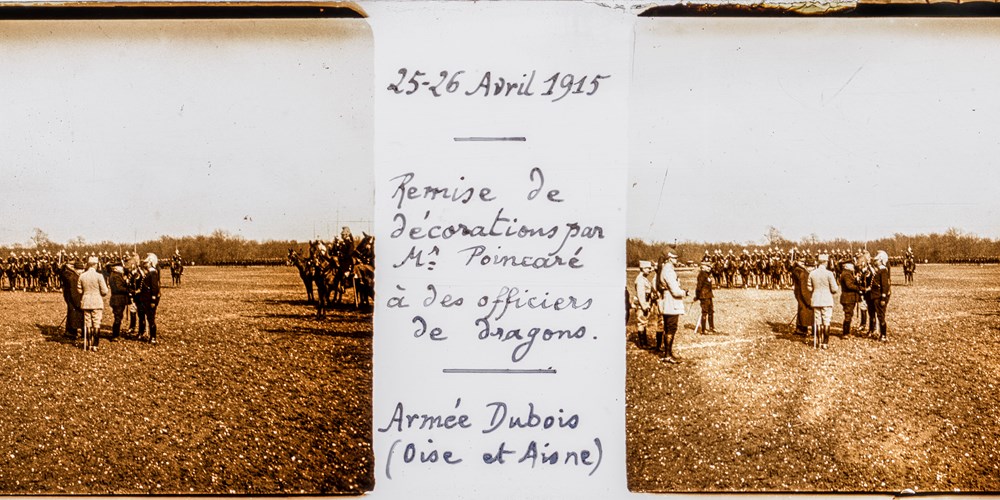 25-26 Avril 1915
Remise de
décorations par
Mr Poincaré
à des officiers
de dragons.
Armée Dubois
(Oise et Aisne)